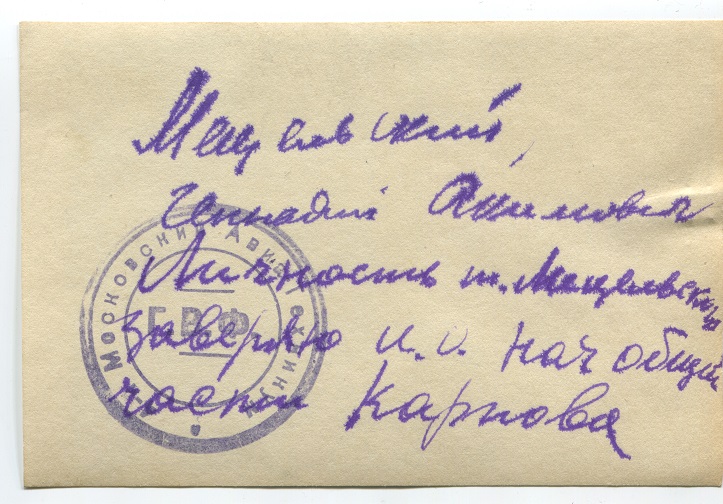 Мацельский,
Геннадий Акимович
Личность т. Мацельского
заверяю и. о. нач общей
части Карпова
Московский Авиа
Г.В.Ф.